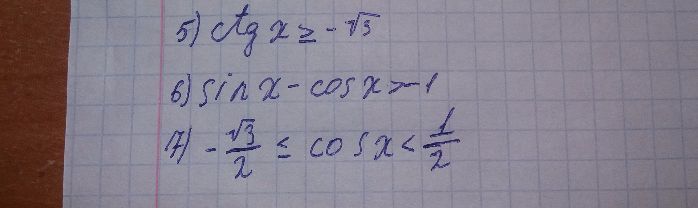 5) ctg x ≥ -√3
6) sin x - cos x > -1
7) -√3/2 ≤ cos x < 1/2